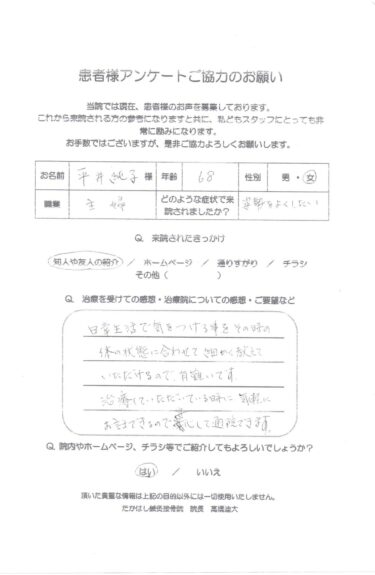 患者様アンケートご協力のお願い
当院では現在、患者様のお声を募集しております。
これから来院される方の参考になりますと共に、私どもスタッフにとっても非
常に励みになります。
お手数ではございますが、是非ご協力よろしくお願いします。
お名前 平井純子 様 年齢 68 性別 男・女
職業 主婦 どのような症状で来院されましたか? 姿勢をよくしたい
Q. 来院されたきっかけ
知人や友人の紹介 / ホームページ / 通りすがり / チラシ
その他( )
Q. 治療を受けての感想・治療院についての感想・ご要望など
日常生活で気をつける事をその時の
体の状態に合わせて細かく教えて
いただけるので、有難いです。
治療していただいている時に気軽に
お話できるので安心して通院できます。
Q. 院内やホームページ、チラシ等でご紹介してもよろしいでしょうか?
はい / いいえ
頂いた貴重な情報は上記の目的以外には一切使用いたしません。
たかはし鍼灸接骨院 院長 高橋迪大